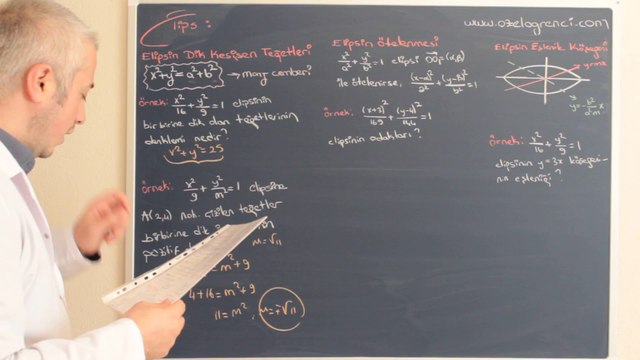 Tips :
www.ozelogrenci.com
Elipsin Dik Kesişen Teğetleri
x²+y²=a²+b² → monj çemberi
örnek: x²/16 + y²/9 = 1 elipsinin
birbirine dik olan teğetlerinin
denklemi nedir?
x²+y²=25
örnek: x²/9 + y²/m² = 1 elipsine
A(2,4) nok. çizilen teğetler
birbirine dik
pozitif
m=√11
m²+9
4+16=m²+9
11=m², m=∓√11
Elipsin Ötelenmesi
x²/a² + y²/b² = 1 elipsi
ile ötelenirse, (x-α)²/a² + (y-β)²/b² = 1
örnek: (x+3)²/169 + (y-4)²/144 = 1
elipsinin odakları?
Elipsin Eşlenik Köşegeni
y=mx
y=-b²/a²m x
örnek: x²/16 + y²/9 = 1
elipsinin y=3x köşegeni-
nin eşleniği?